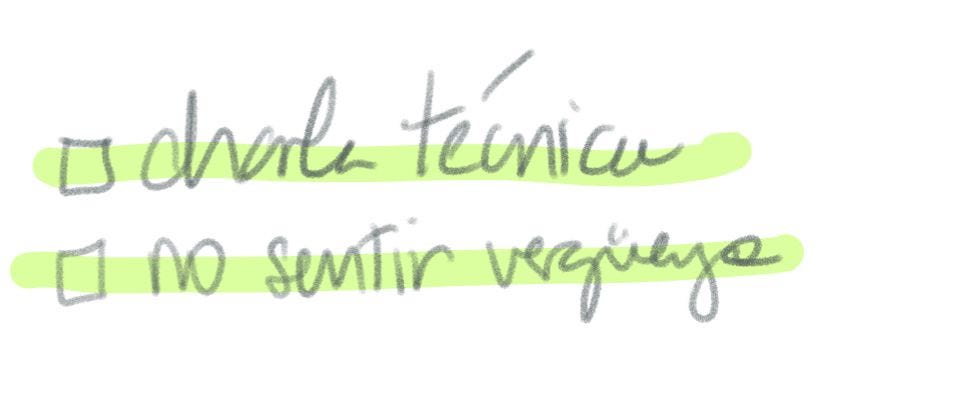 □ charla técnica
□ no sentir vergüenza